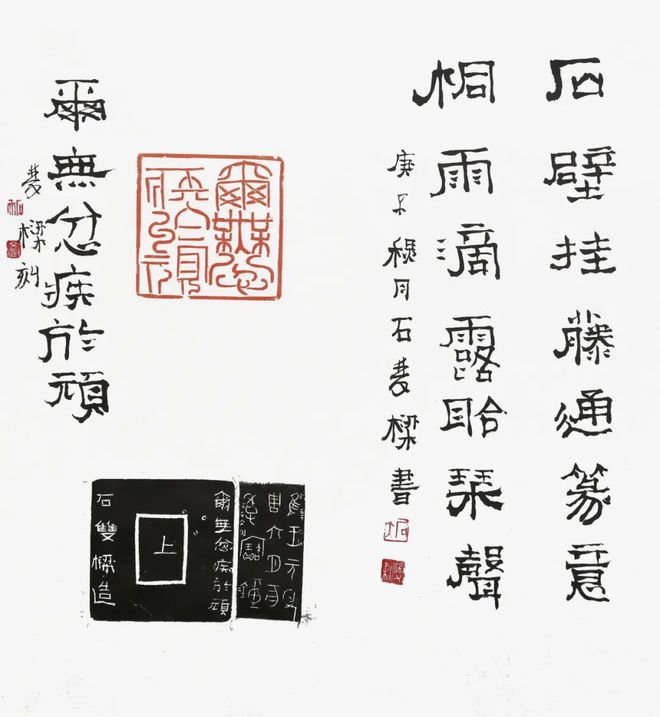 石壁挂藤通篆意
桐雨滴露聆琴聲
庚子穐月石雙樑書
爾無忿疾於頑
爾無忿疾於頑
雙樑刻
上
爾無忿疾於頑
石雙樑造